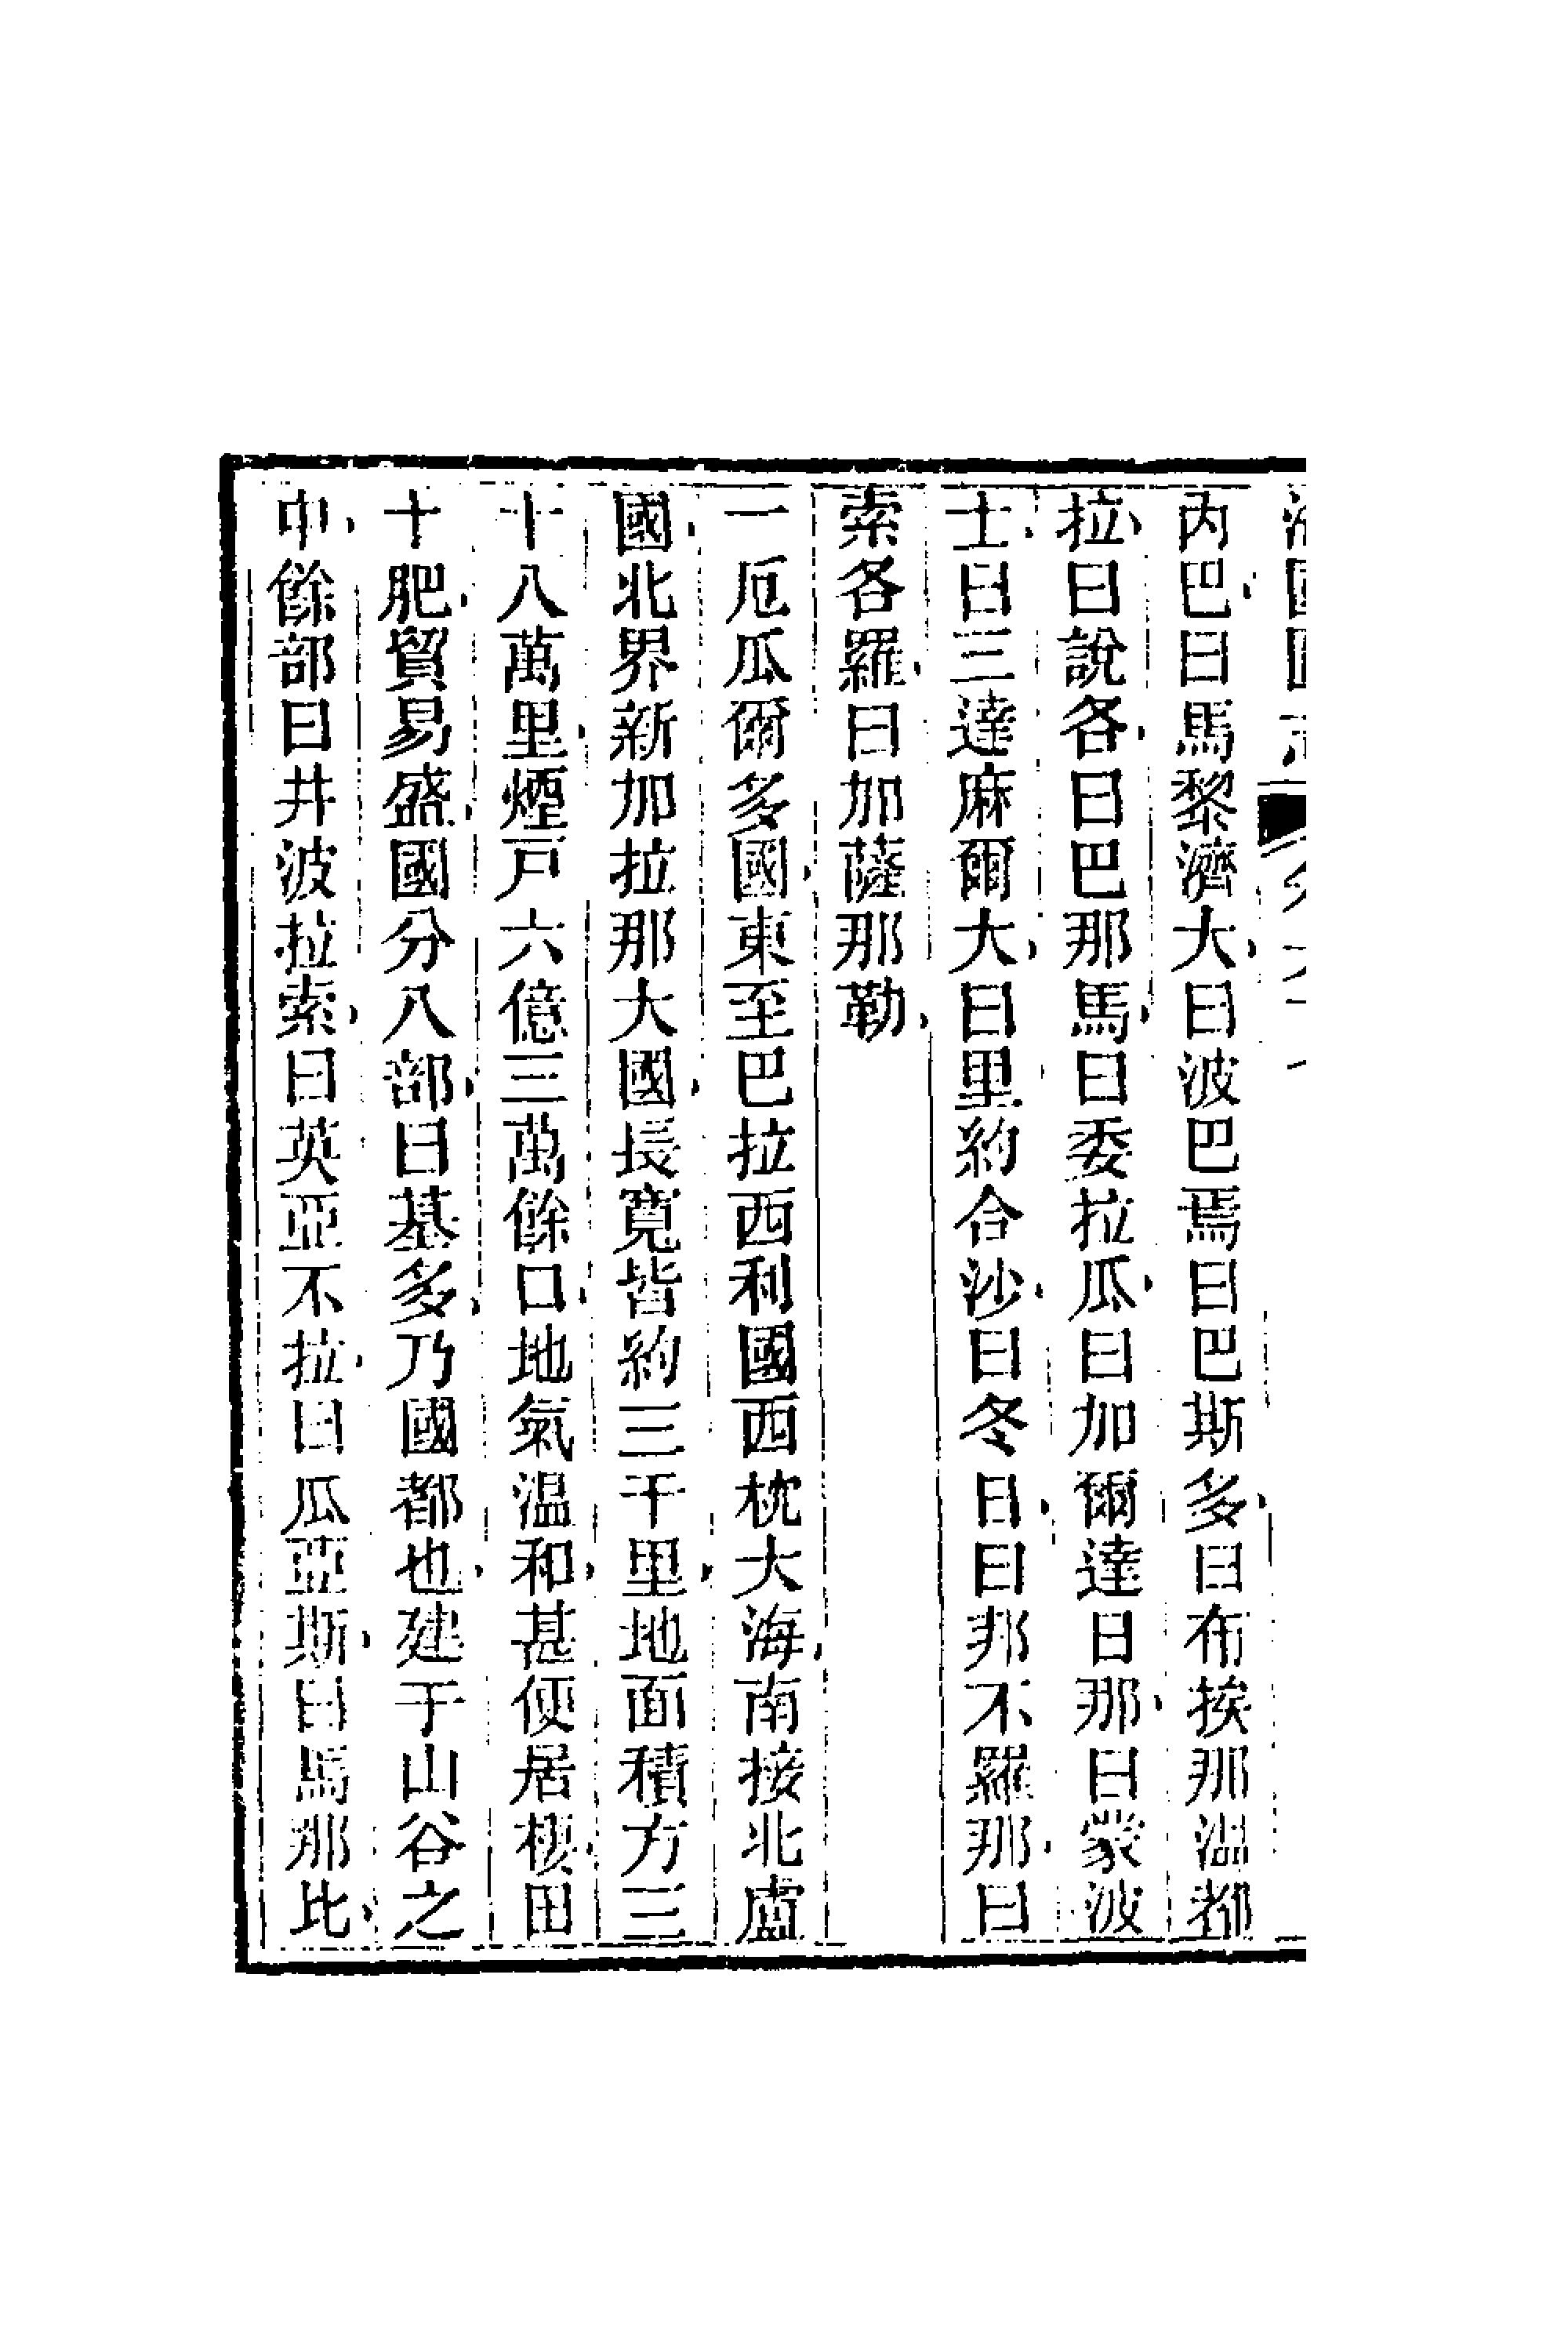 丙巴曰馬黎濟大曰波巴焉曰巴斯多曰布挨那溫都
拉曰說各曰巴那馬曰委拉瓜曰加爾達曰那曰蒙波
士曰三達麻爾大曰里約合沙曰冬曰曰邦不羅那曰
索各羅曰加薩那勒
一厄瓜爾多國東至巴拉西利國西枕大海南接北盧
國北界新加拉那大國長寬皆約三千里地面積方三
十八萬里煙戸六億三萬餘口地氣温和甚便居棲田
十肥貿易盛國分八部曰基多乃國都也建于山谷之
中餘部曰井波拉索曰英亞不拉曰瓜亞斯曰馬那比